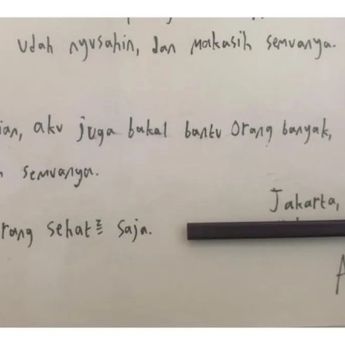 udah nyusahin, dan makasih semuanya.
aku juga bakal bantu orang banyak,
semuanya.
Jakarta,
sehat² saja.